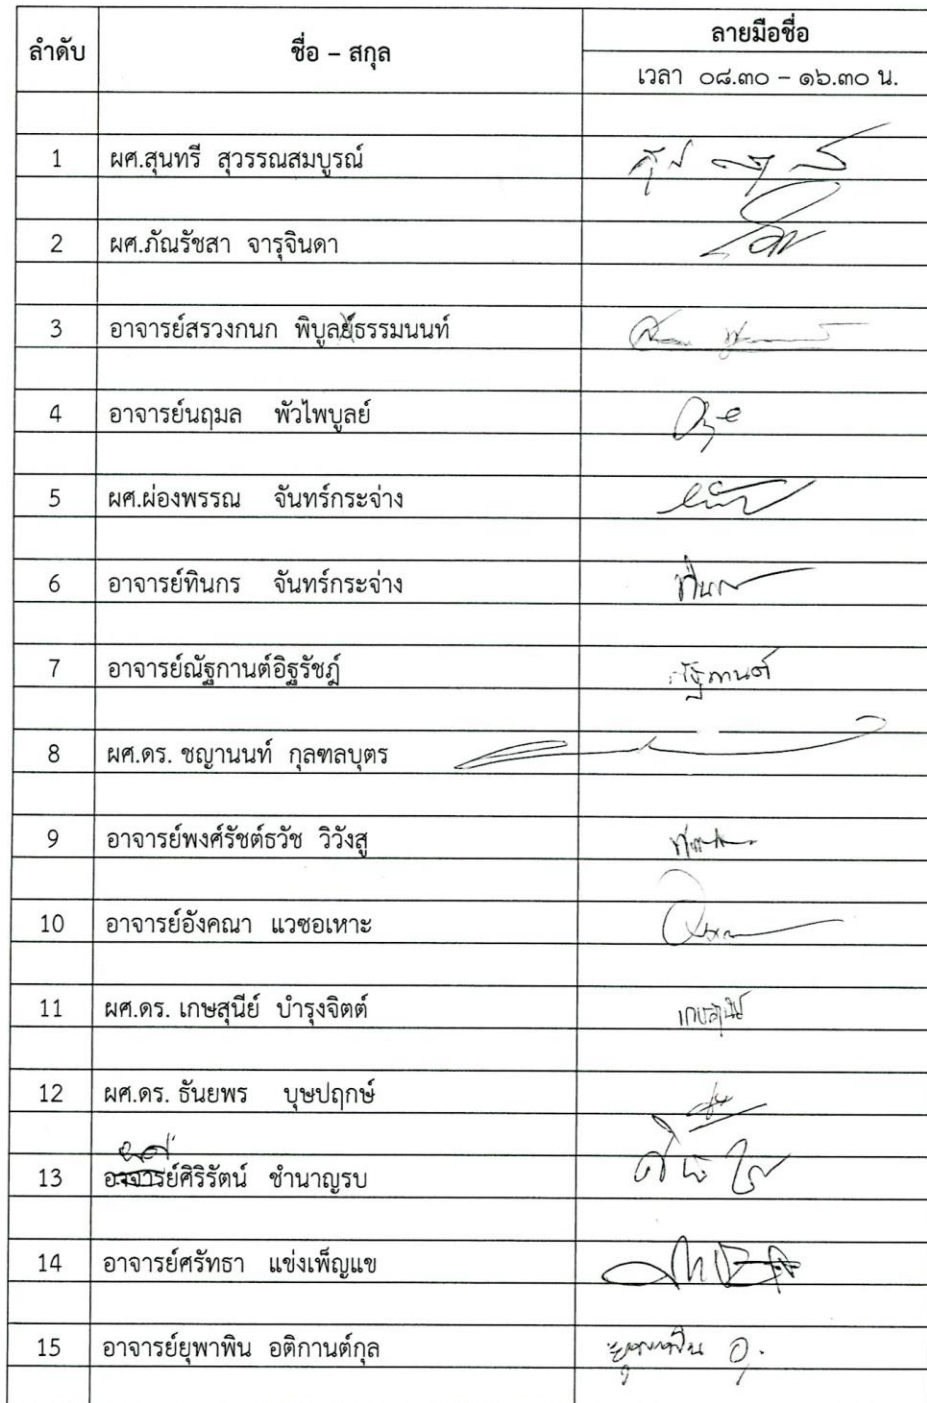 ลำดับ ชื่อ – สกุล ลายมือชื่อ
เวลา ๐๘.๓๐ – ๑๖.๓๐ น.
1 ผศ.สุนทรี สุวรรณสมบูรณ์
2 ผศ.ภัณรัชสา จารุจินดา
3 อาจารย์สรวงกนก พิบูลย์ธรรมนนท์
4 อาจารย์นฤมล พัวไพบูลย์
5 ผศ.ผ่องพรรณ จันทร์กระจ่าง
6 อาจารย์ทินกร จันทร์กระจ่าง
7 อาจารย์ณัฐกานต์อิฐรัชฎ์ ณัฐกานต์
8 ผศ.ดร. ชญานนท์ กุลฑลบุตร
9 อาจารย์พงศ์รัชต์ธวัช วิวังสู
10 อาจารย์อังคณา แวซอเหาะ
11 ผศ.ดร. เกษสุนีย์ บำรุงจิตต์ เกษสุนีย์
12 ผศ.ดร. ธันยพร บุษปฤกษ์
ผศ.
13 อาจารย์ศิริรัตน์ ชำนาญรบ
14 อาจารย์ศรัทธา แข่งเพ็ญแข
15 อาจารย์ยุพาพิน อติกานต์กุล ยุพาพิน อ.